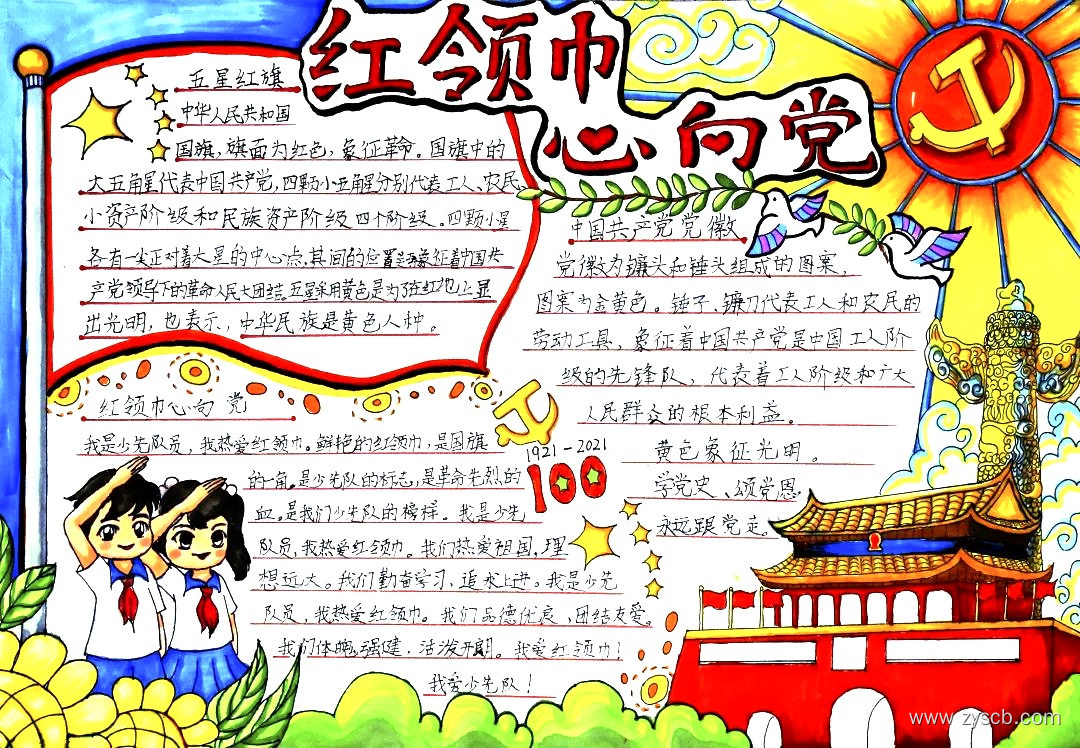 红领巾
心向党
五星红旗
中华人民共和国
国旗，旗面为红色，象征革命。国旗中的
大五角星代表中国共产党，四颗小五角星分别代表工人、农民、
小资产阶级和民族资产阶级四个阶级。四颗小星
各有一尖正对着大星的中心点，其间的位置是象征着中国共
产党领导下的革命人民大团结。五星采用黄色是为了在红地上显
出光明，也表示，中华民族是黄色人种。
中国共产党党徽
党徽为镰头和锤头组成的图案，
图案为金黄色。锤子、镰刀代表工人和农民的
劳动工具，象征着中国共产党是中国工人阶
级的先锋队，代表着工人阶级和广大
人民群众的根本利益。
黄色象征光明。
学党史、颂党恩，
永远跟党走。
1921-2021
100
红领巾心向党
我是少先队员，我热爱红领巾。鲜艳的红领巾，是国旗
的一角。是少先队的标志，是革命先烈的
血。是我们少先队的榜样。我是少先
队员，我热爱红领巾。我们热爱祖国，理
想远大。我们勤奋学习，追求上进。我是少先
队员，我热爱红领巾。我们品德优良，团结友爱。
我们体魄强健，活泼开朗。我爱红领巾！
我爱少先队！
www.zyscb.com